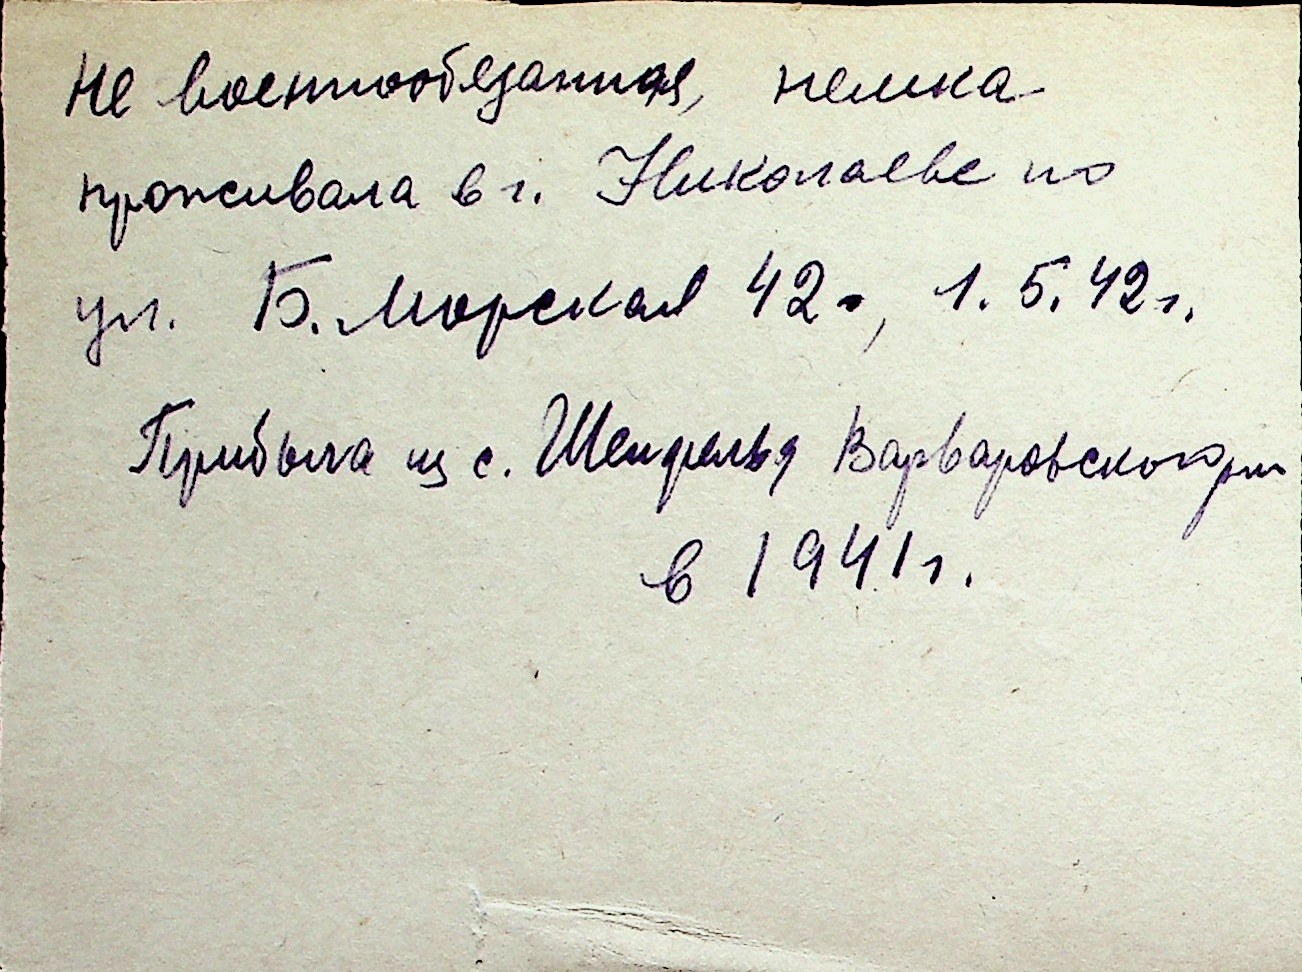 Не военнообязанная, немка
проживала в г. Николаеве по
ул. Б. Морская 42, 1.5.42 г.
Прибыла из с. Шенфельд Варваровского рн
в 1941 г.